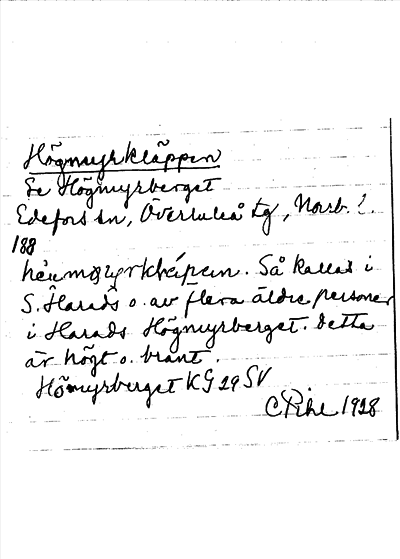 Högmyrkläppen
Se Högmyrberget
Edefors sn, Överluleå tg, Norrb. l.
188
Så kallas i
S. Harads o. av flera äldre personer
i Harads Högmyrberget. Detta
är högt o. brant.
Högmyrberget KG 29 SV
C Pihl 1928